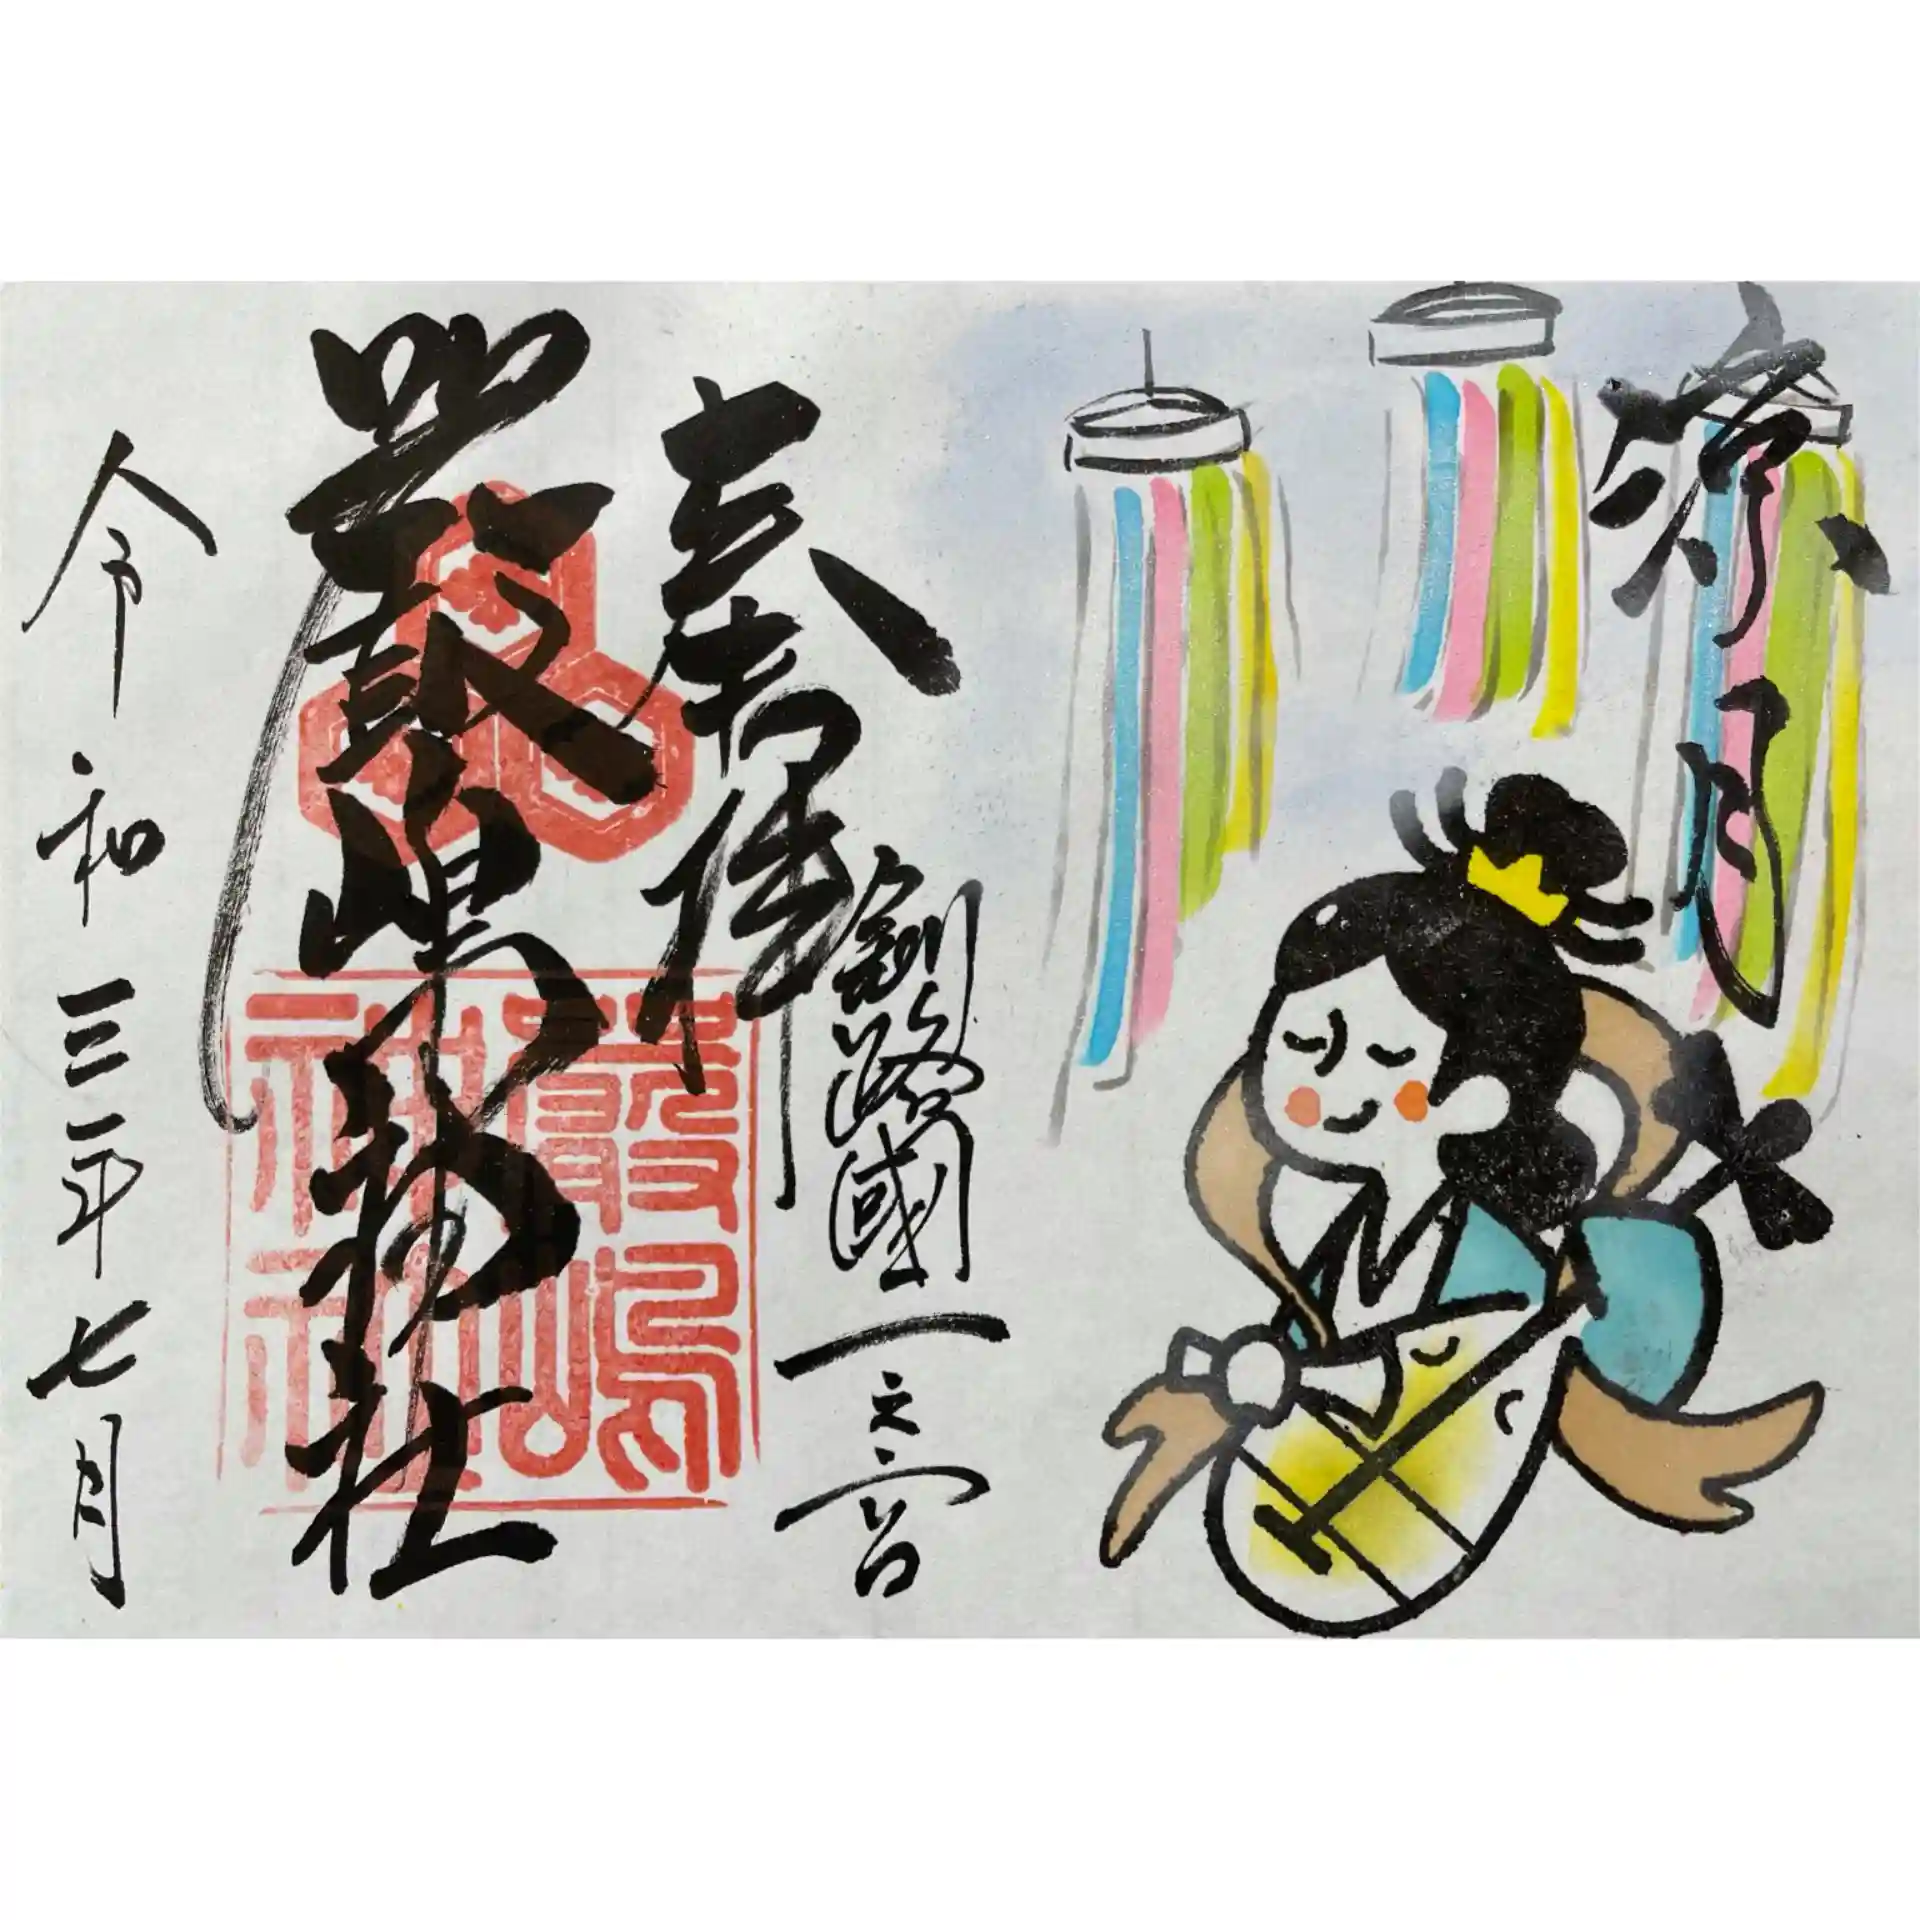 涼月
釧路國一之宮
奉拝
嚴島神社
嚴嶋神社
令和三年七月